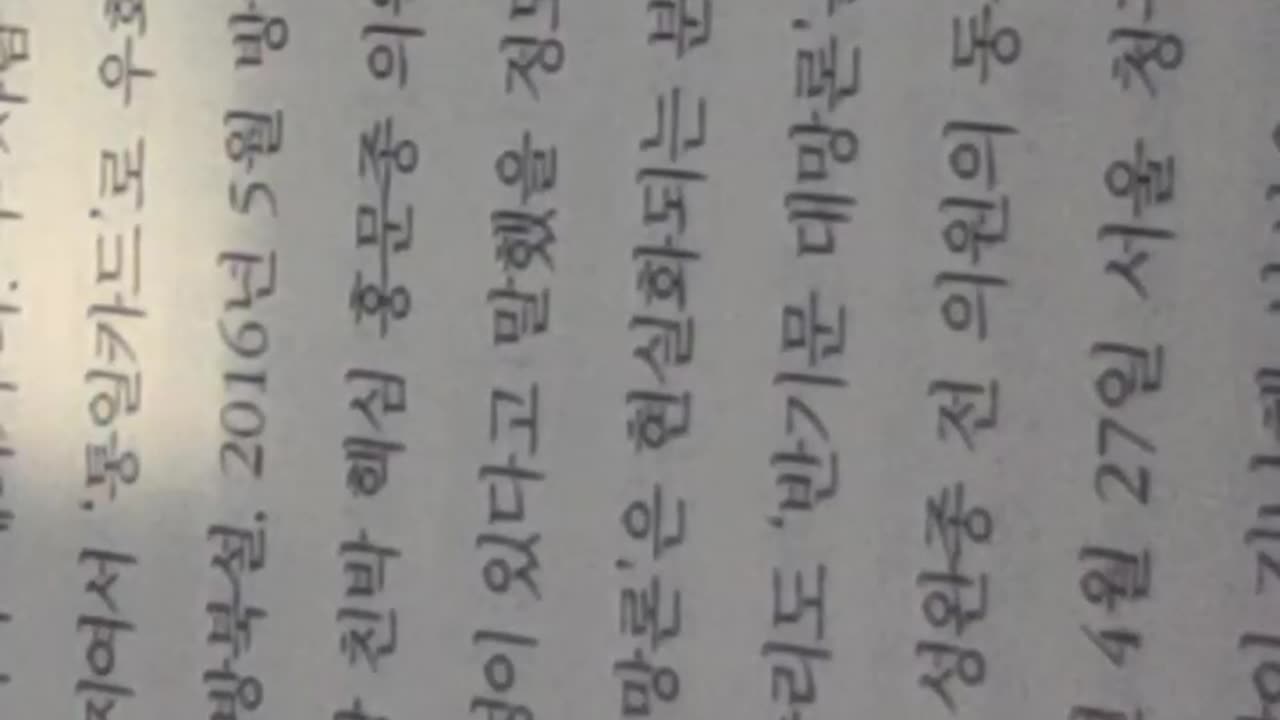 지여서 '통일카드'로 우회
방북설, 2016년 5월 방
친박 핵심 홍문종 의
이 있다고 말했을 정
망론'은 현실화되는 분
리도 '반기문 대망론'
성완종 전 의원의 동
4월 27일 서울 청